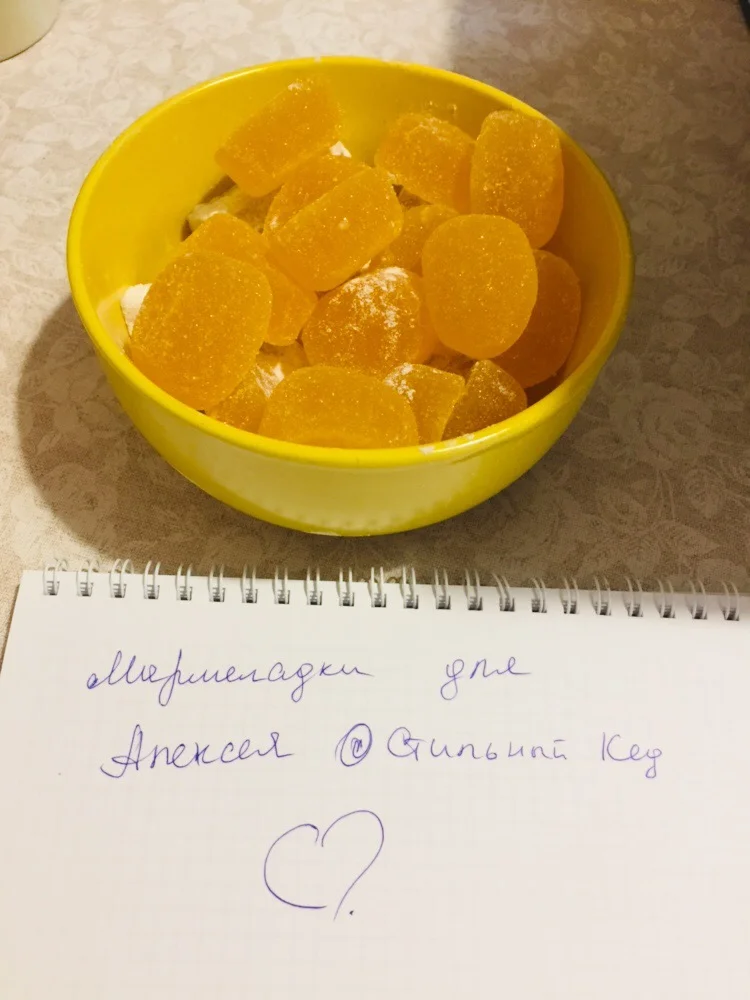 Мармеладки для
Алексея @Стильный Кед